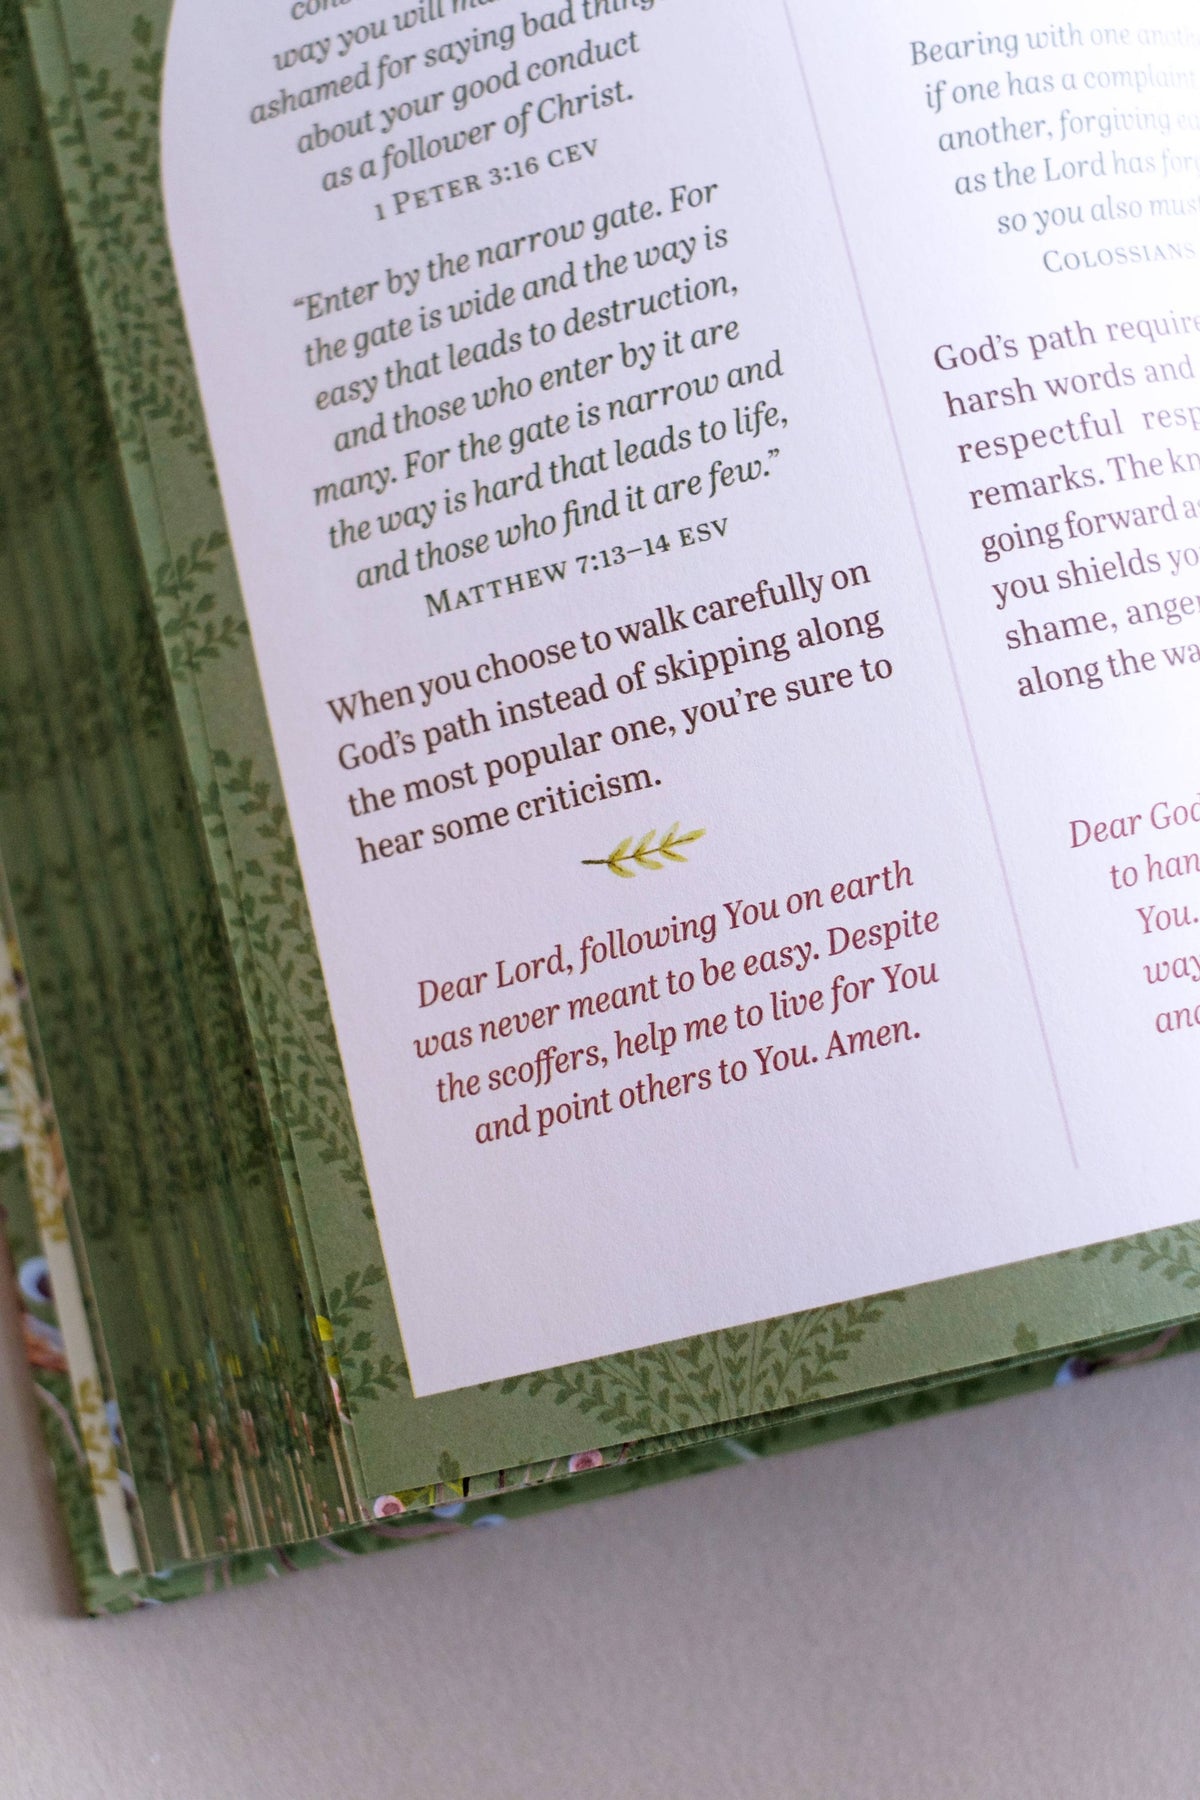 way you will
ashamed for saying bad
about your good conduct
as a follower of Christ.
1 PETER 3:16 CEV
“Enter by the narrow gate. For
the gate is wide and the way is
easy that leads to destruction,
and those who enter by it are
many. For the gate is narrow and
the way is hard that leads to life,
and those who find it are few.”
MATTHEW 7:13–14 ESV
When you choose to walk carefully on
God’s path instead of skipping along
the most popular one, you’re sure to
hear some criticism.
Dear Lord, following You on earth
was never meant to be easy. Despite
the scoffers, help me to live for You
and point others to You. Amen.
Bearing with one
if one has a complaint
another, forgiving
as the Lord has
so you also
COLOSSIANS
God’s path
harsh words and
respectful
remarks. The
going forward
you shields
shame,
along the
Dear
to
You.